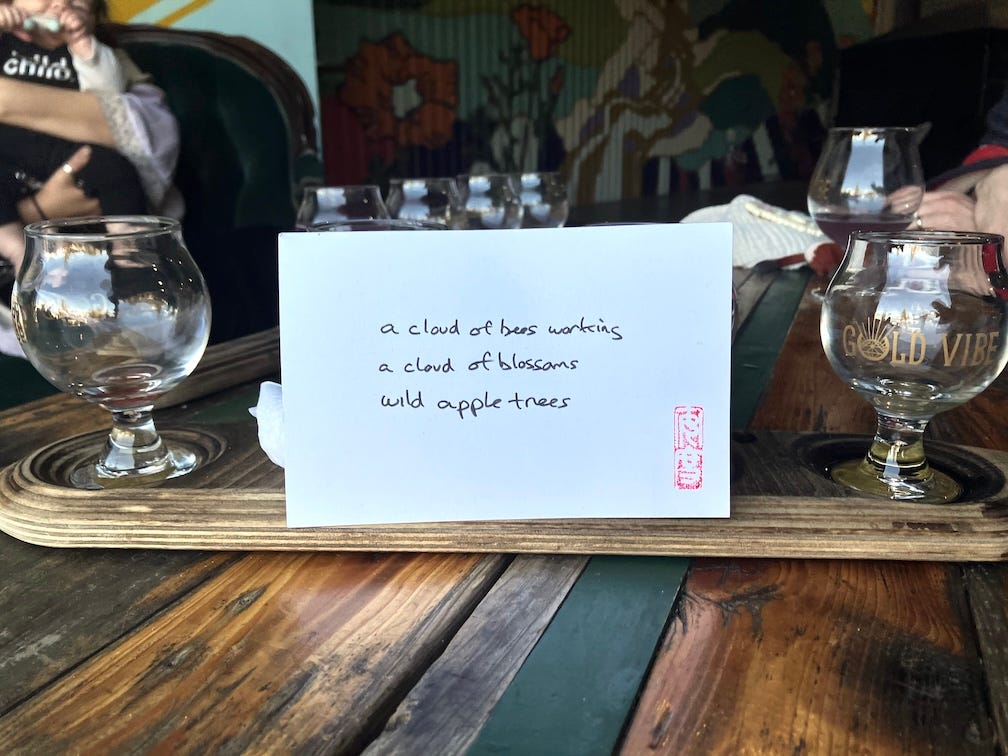 child
a cloud of bees working
a cloud of blossoms
wild apple trees
GOLD VIBE